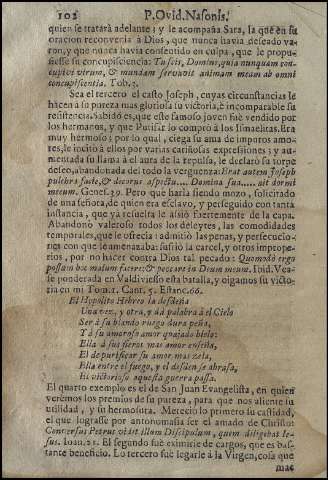 102 P. Ovid. Nasonis.
quien se tratarà adelante; y le acompaña Sara, la que en su
oracion reconvenia à Dios, que nunca havia deseado va-
ron, y que nunca havia consentido en culpa, que le propu-
siesse su concupisciencia: Tu scis, Domine, quia nunquam con-
cupivi virum, & mundam servavi animam meam ab omni
concupiscentia. Tob. 3.
Sea el tercero el casto Joseph, cuyas circunstancias le
hacen à su pureza mas gloriosa su victoria, è incomparable su
resistencia. Sabido es, que este famoso joven fuè vendido por
los hermanos, y que Putifar lo comprò à los Ismaelitas. Era
muy hermoso; por lo qual, ciega su ama de impuros amo-
res, le incitò à ellos por varias cariñosas expressiones; y au-
mentada su llama à el aura de la repulsa, le declarò su torpe
deseo, abandonada del todo la verguenza: Erat autem Joseph
pulchra facie, & decorus aspectu.... Domina sua.... ait dormi
mecum. Genes. 39. Pero què haria siendo mozo, solicitado
de una señora, de quien era esclavo, y perseguido con tanta
instancia, que yà resuelta le asiò fuertemente de la capa.
Abandonò valeroso todos los deleytes, las comodidades
temporales, que le ofrecia: admitiò las penas, y persecucio-
nes con que le amenazaba: sufriò la carcel, y otros imprope-
rios, por no hacer contra Dios tal pecado: Quomodò ergo
possum hoc malum facere: & peccare in Deum meum. Ibid. Vea-
se ponderada en Valdiviesso esta batalla, y oigamos su victo-
ria en mi Tom. 1. Cant. 5. Estanc. 66.
El Hypolito Hebreo la desdeña
Una vez, y otra, y dà palabra à el Cielo
Ser à su blando ruego dura peña,
Y à su amoroso amor quajado hielo:
Ella à sus fieros mas amor enseña,
El de purificar su amor mas zela,
Ella entre el fuego, y el desdèn se abrasa,
Hà victorioso aquesta guerra passa.
El quarto exemplo es el de San Juan Evangelista, en quien
verèmos los premios de su pureza, para que nos aliente su
utilidad, y su hermosura. Mereciò lo primero su castidad,
el que lograsse por antonomasia ser el amado de Christo:
Conversus Petrus vidit illum Discipulum, quem diligebat Ie-
sus. Ioan. 21. El segundo fuè eximirse de cargos, que es bas-
tante beneficio. Lo tercero fuè legarle à la Virgen, cosa que
mac